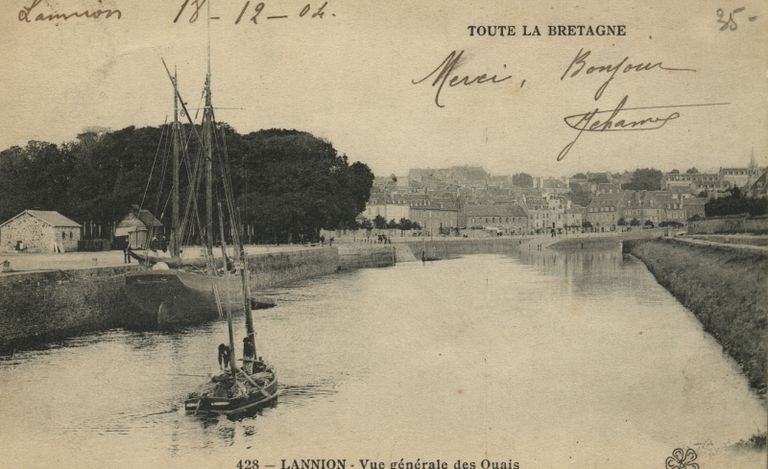 Lannion 18-12-04.
35-
TOUTE LA BRETAGNE
Merci, Bonjour
428 - LANNION - Vue générale des Quais